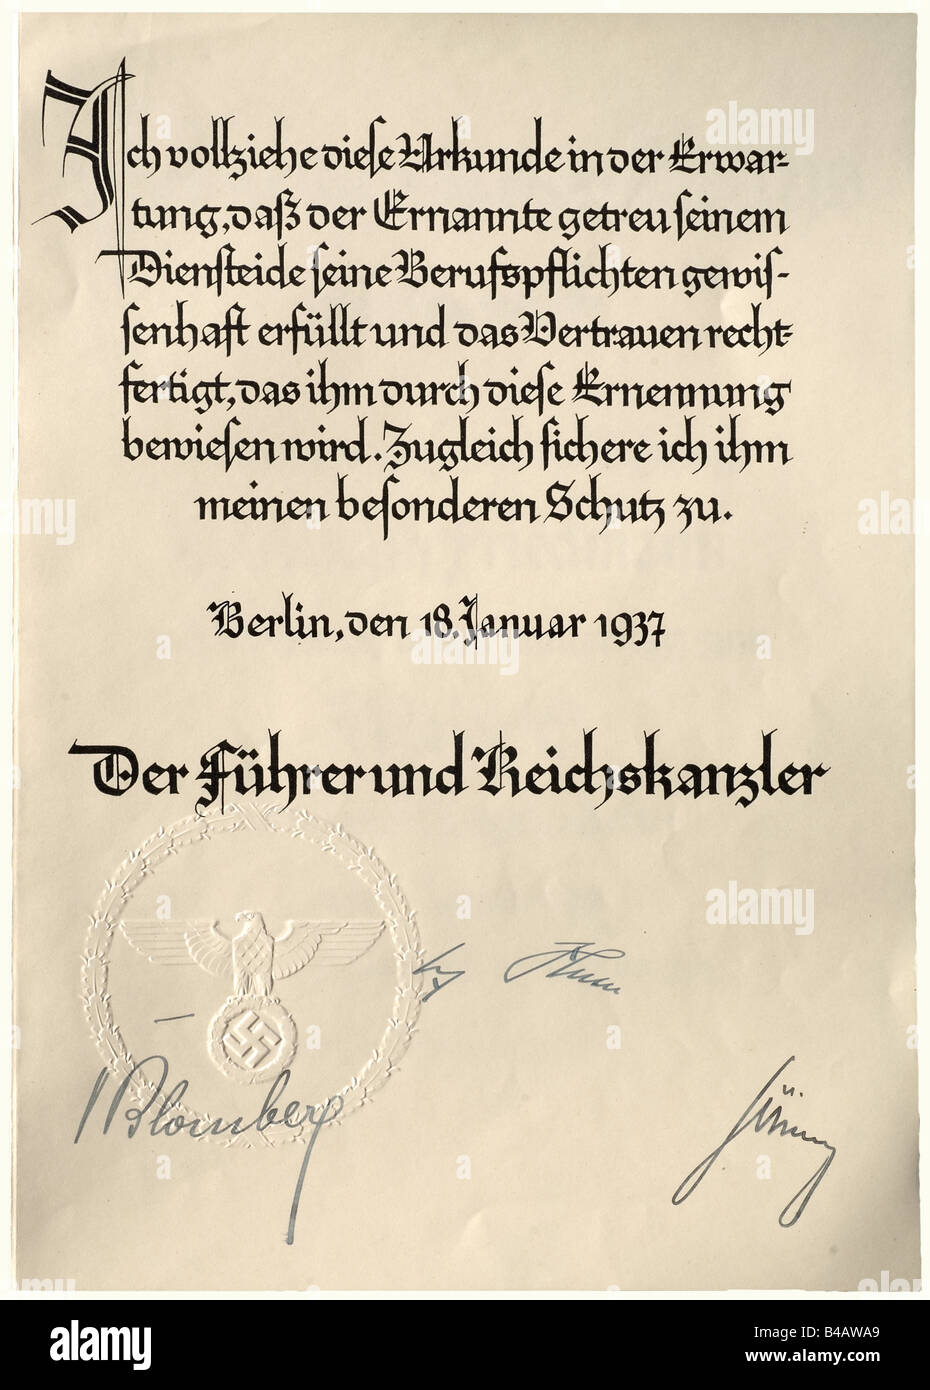 Ich vollziehe diese Urkunde in der Erwar-
tung, daß der Ernannte getreu seinem
Diensteide seine Berufspflichten gewis-
senhaft erfüllt und das Vertrauen recht-
fertigt, das ihm durch diese Ernennung
bewiesen wird. Zugleich sichere ich ihm
meinen besonderen Schutz zu.
Berlin, den 18. Januar 1937
Der Führer und Reichskanzler
Blomberg
Göring
alamy
Image ID: B4AWA9
www.alamy.com